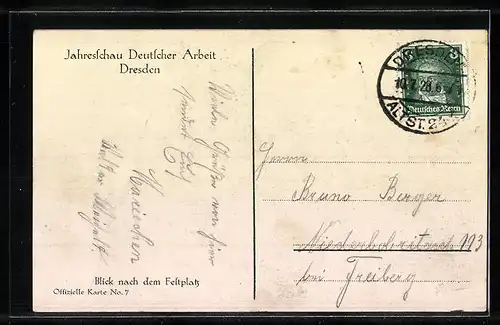 Jahresschau Deutscher Arbeit
Dresden
Viele Grüße von hier
sendet Euch
Mariechen
Blick nach dem Festplatz
Offizielle Karte No. 7
DRESDEN
ALTST. 24
Deutsches Reich
Herrn
Bruno Berger
Niederbobritzsch 113
bei Freiberg